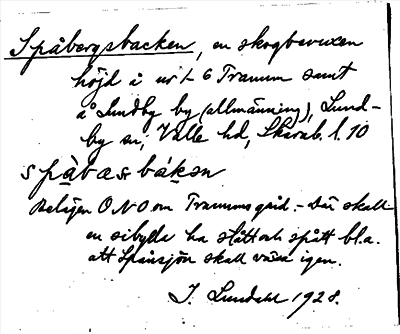 Spåbergsbacken, en skogbevuxen
höjd å nr 1-6 Tramm samt
å Lundby by (allmänning), Lund-
by sn, Valle hd, Skarab. l. 10
spåbærbakən
Belägen O N O om Tramms gård. - Där skall
en sibylla ha stått och spått bl.a.
att Spånsjön skall växa igen.
I. Lundahl 1928.